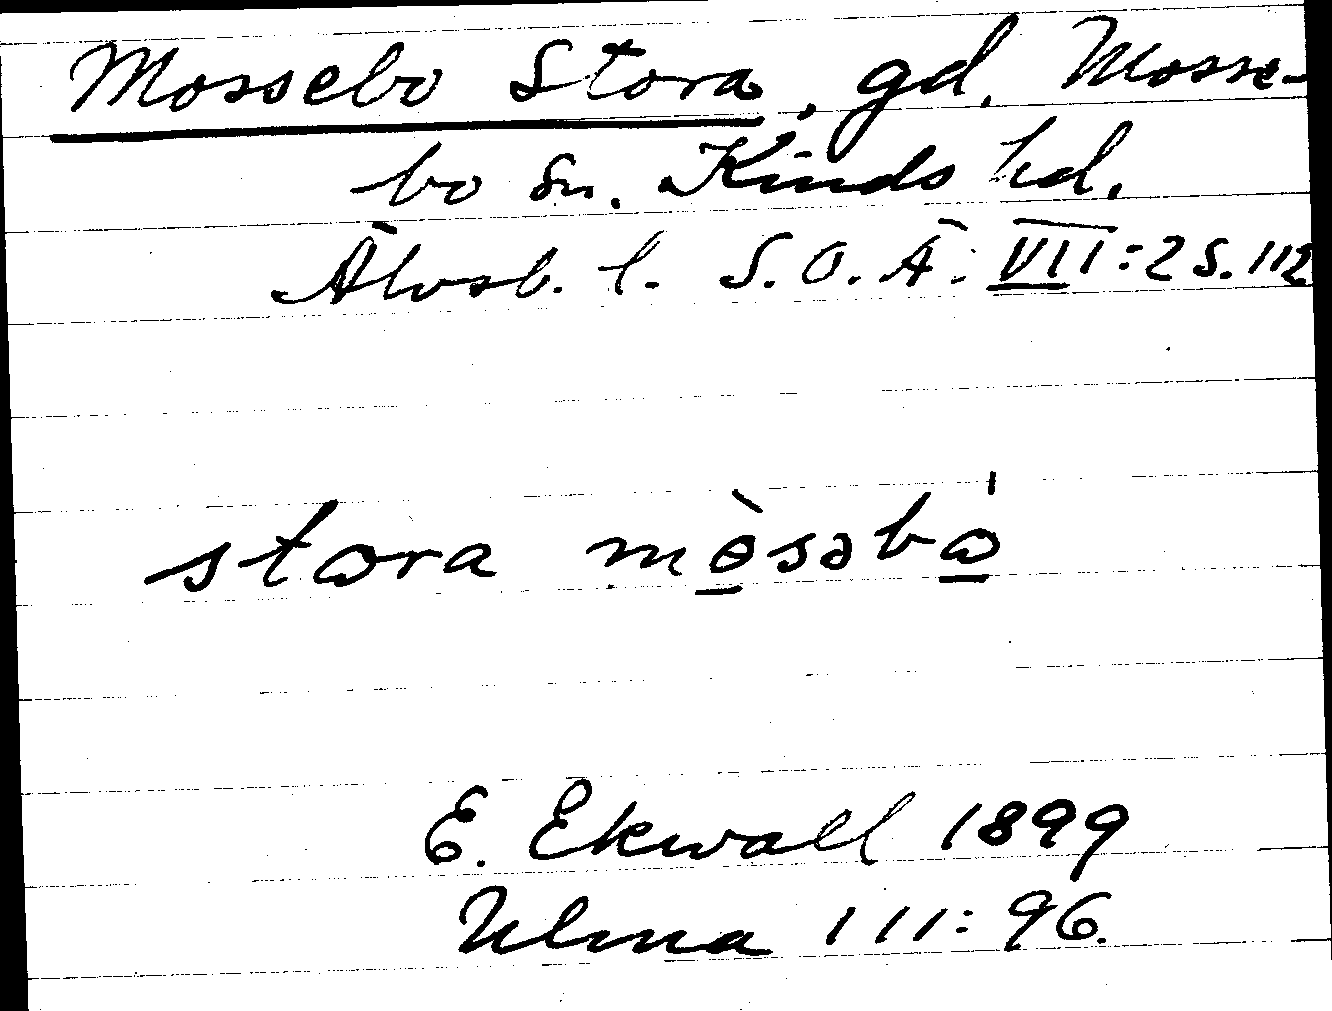 Mossebo Stora, gd, Mosse-
bo sn. Kinds hd.
Älvsb. l. S.O.Ä. VII:2 S. 112
stora mɵ̀səbo̱ˈ
E. Ekwall 1899
Ulma 111:96.